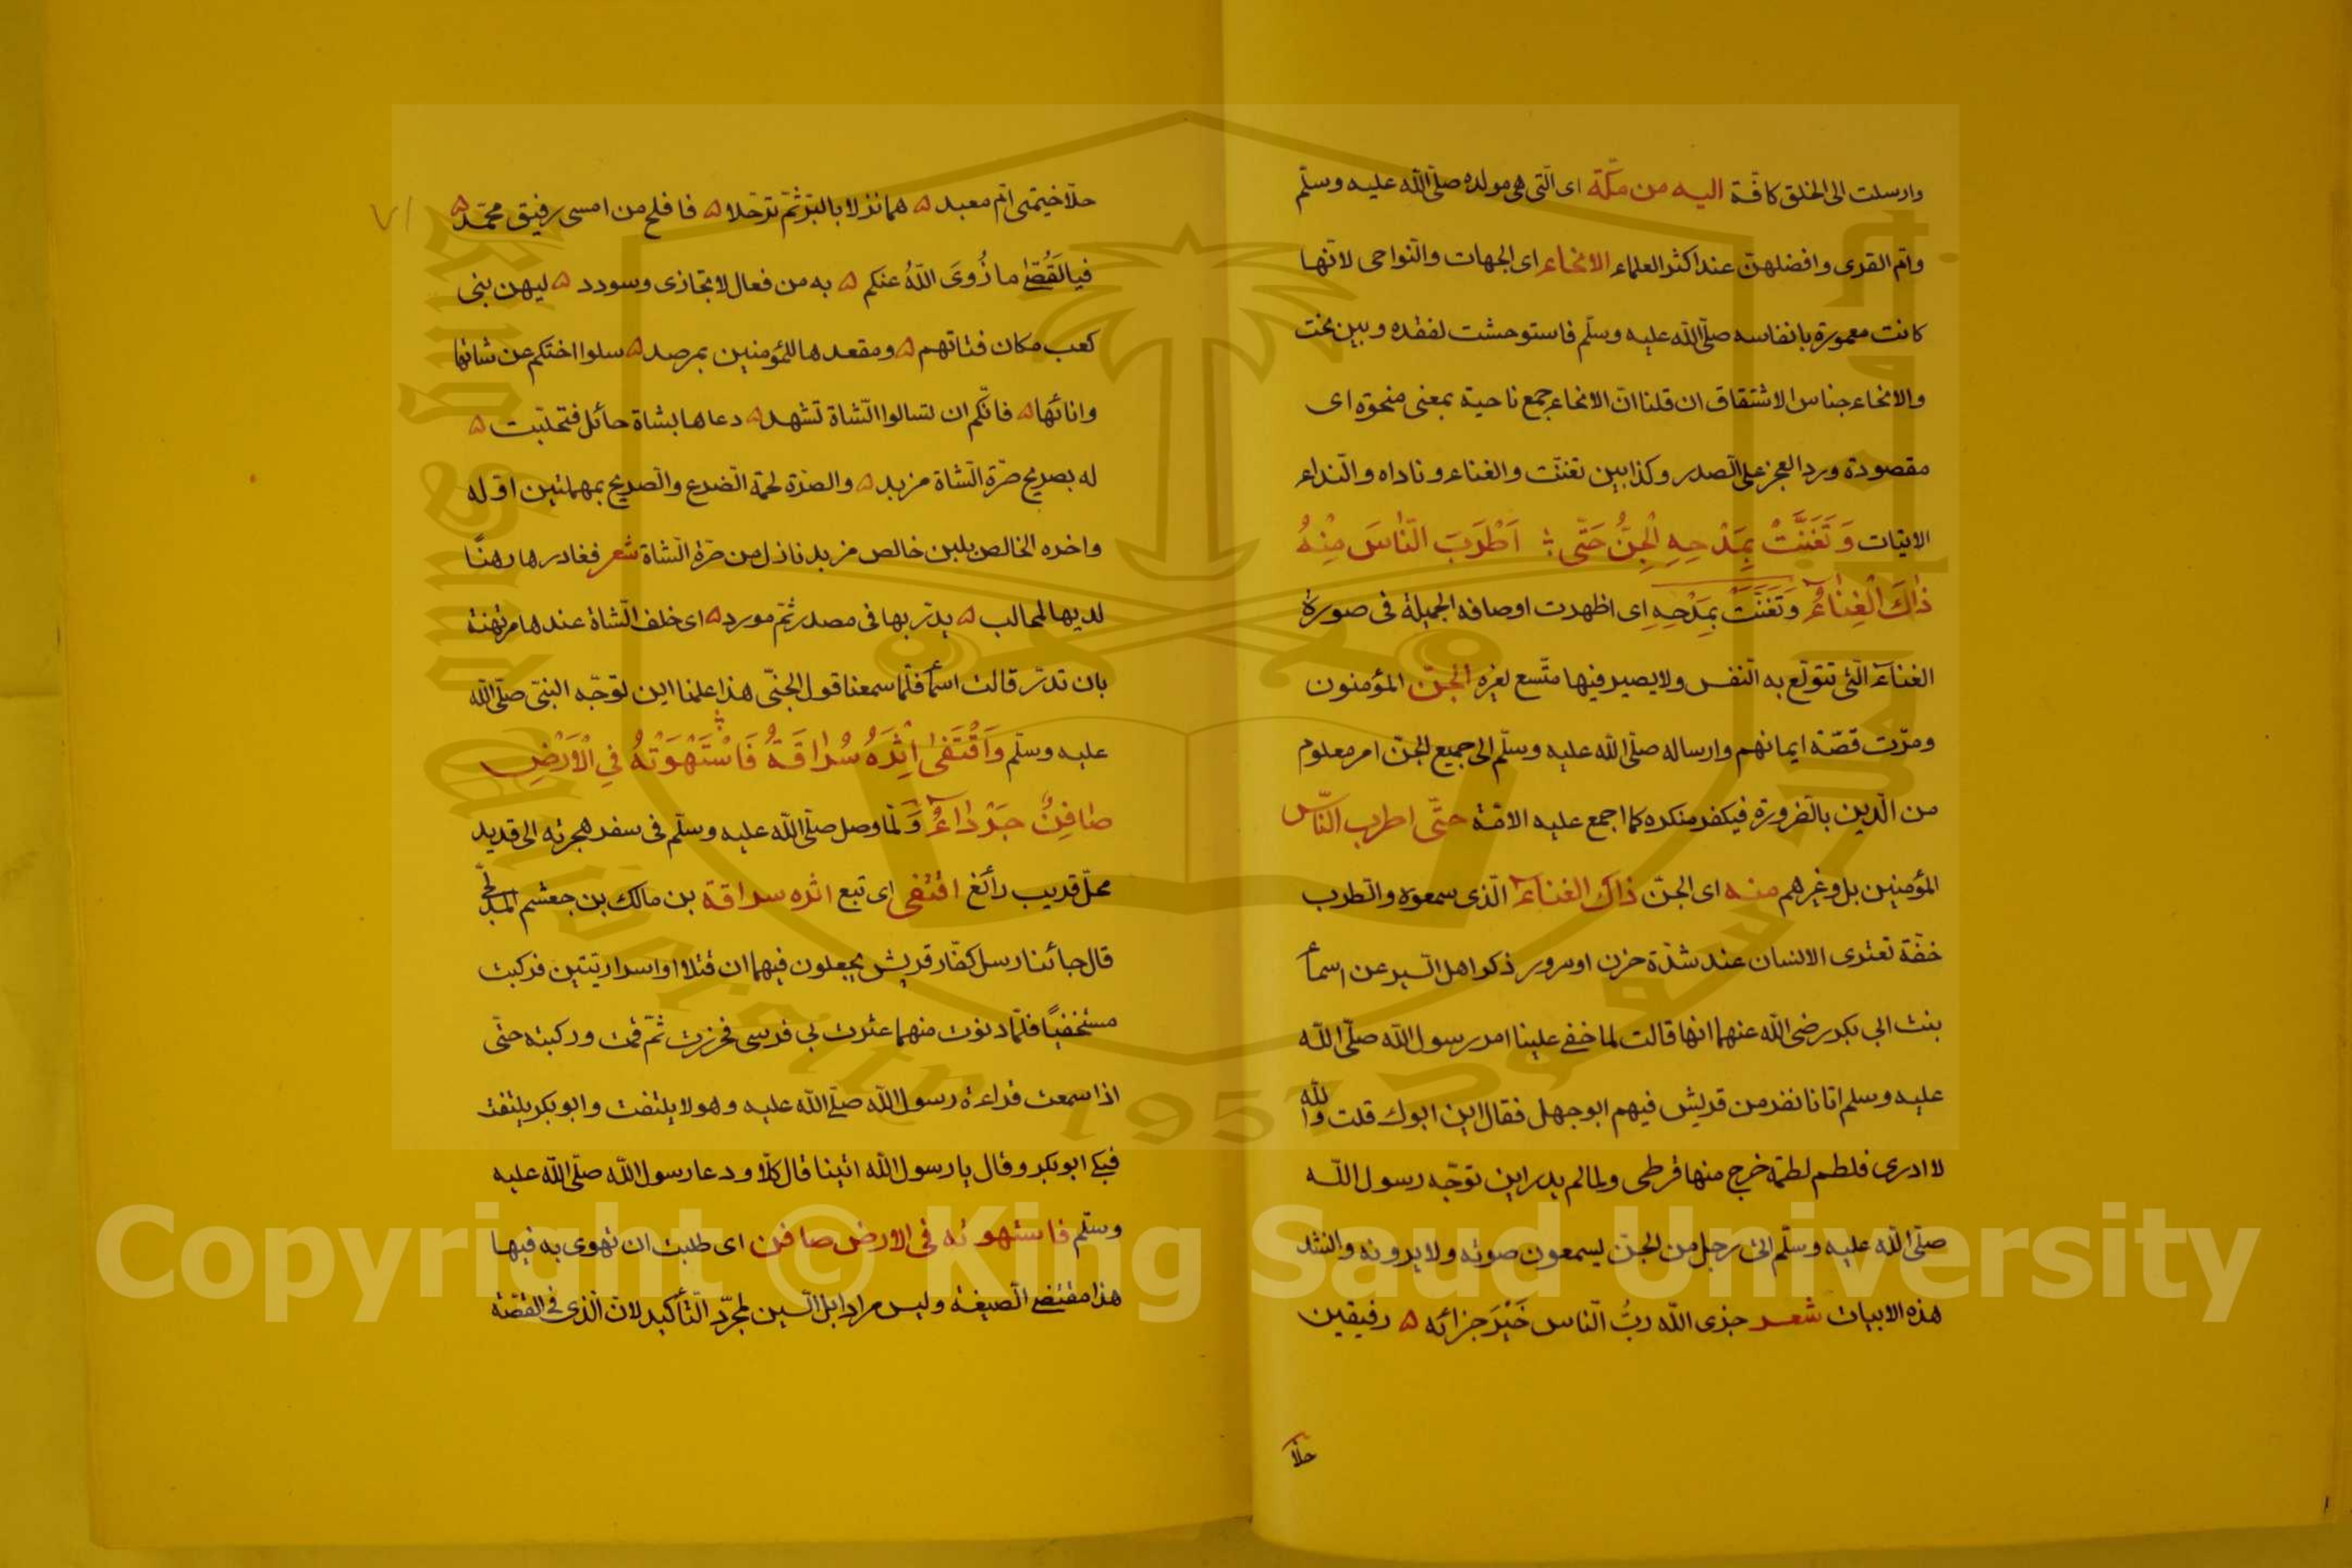 وارسلت الى الخلق كافّة اليه من مكّة اى الّتى هى مولده صلّى اللّه عليه وسلّم
وامّ القرى وافضلهنّ عند اكثر العلماء الانحاء اى الجهات والنّواحى لانّها
كانت معمورة بانفاسه صلّى اللّه عليه وسلّم فاستوحشت لفقده وبين نحت
والانحاء جناس الاشتقاق ان قلنا انّ الانحاء جمع ناحية بمعنى منحوّة اى
مقصودة ورد العجز على الصدر وكذا بين تغنّت والغناء وناداه والنّداء
الاتيات وَتَغَنَّتْ بِمَدْحِهِ الْجِنُّ حَتّى ؛ اَطْرَبَ النّاسَ مِنْهُ
ذٰاكَ الْغِنٰاءُ وَتَغَنَّتْ بِمَدْحِهِ اى اظهرت اوصافه الجميلة فى صورة
الغناء الّتى تتولّع به النّفس ولا يصير فيها متّسع لغيره الجنّ المؤمنون
ومرّت قصّة ايمانهم وارساله صلّى اللّه عليه وسلّم الى جميع الجنّ امر معلوم
من الدّين بالضّرورة فيكفر منكره كما اجمع عليه الامّة حتّى اطرب النّاس
المؤمنين بل وغيرهم منه اى الجنّ ذاك الغناء الّذى سمعوه والطّرب
خفّة تعترى الانسان عند شدّة حزن او سرور ذكر اهل السّير عن اسماء
بنت ابي بكر رضى اللّه عنهما انها قالت لما خفى علينا امر رسول اللّه صلّى اللّه
عليه وسلم اتانا نفر من قريش فيهم ابو جهل فقال اين ابوك قلت واللّه
لا ادرى فلطم لطمة خرج منها قرطى ولما لم يدر اين توجّه رسول اللّه
صلّى اللّه عليه وسلّم اتى رجل من الجنّ يسمعون صوته ولا يرونه وانشد
هذه الابيات شعر جزى اللّه ربُّ النّاس خَيْرَ جزائه ۵ رفيقين
حلّا
حلّا خيمتى امّ معبد ۵ هما نزلا بالبرّ ثمّ ترحّلا ۵ فافلح من امسى رفيق محمّد ۵
فيالَقُصَىّ ما زُوِىَ اللّهُ عنكم ۵ به من فعال لا تجازى وسودد ۵ ليهن بنى
كعب مكان فتاتهم ۵ ومقعدها للمؤمنين بمرصد ۵ سلوا اختكم عن شاتها
وانائها ۵ فانّكم ان تسالوا الشّاة تشهد ۵ دعاها بشاة حائل فتحلّبت ۵
له بصريح ضرّة الشّاة مزبد ۵ والضرّة لحمة الضّرع والصّريح بمهملتين اوّله
واخره الخالص بلبن خالص مزبد نازل من ضرّة الشّاة شعر فغادرها رهنًا
لديها لحالب ۵ يدرّ بها فى مصدر ثمّ مورد ۵ اى خلف الشّاة عندها مرتهنة
بان تدرّ قالت اسماء فلمّا سمعنا قول الجنّى هذا علمنا اين توجّه النبىّ صلّى اللّه
عليه وسلّم وَاقْتَفىٰ اِثْرَهُ سُرٰاقَةُ فَاسْتَهْوَتْهُ فِي الْاَرْضِ
صٰافِنٌ جَرْدٰاءُ وَ لمّا وصل صلّى اللّه عليه وسلّم فى سفر هجرته الى قديد
محلّ قريب رأبغ اقتفى اى تبع اثره سراقة بن مالك بن جعشم المدلجى
قال جائنا رسل كفّار قريش يجعلون فيهما ان قتلا او اسرا ديتين فركبت
مستخفيًا فلمّا دنوت منهما عثرت بى فرسى فخررت ثمّ قمت وركبته حتّى
اذا سمعت قراءة رسول اللّه صلّى اللّه عليه وهو لا يلتفت وابو بكر يلتفت
فبكى ابو بكر وقال يا رسول اللّه اتينا قال كلّا ودعا رسول اللّه صلّى اللّه عليه
وسلّم فاستهوته فى الارض صافن اى طلبت ان تهوى به فيها
هذا مقتضى الصّيغة وليس مرادا بل السّين لمجرّد التّأكيد لانّ الّذى فى القصّة
٧١
King Saud University
1957
Copyright © King Saud University